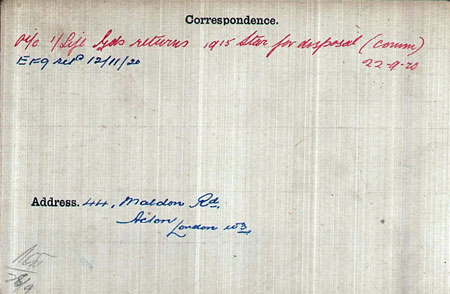 Correspondence.
O/c 1/Life Gds returns 1915 Star for disposal (Comm)
EF9 retd 12/11/20
22-9-20
Address. 44, Maldon Rd.
Acton
London W3